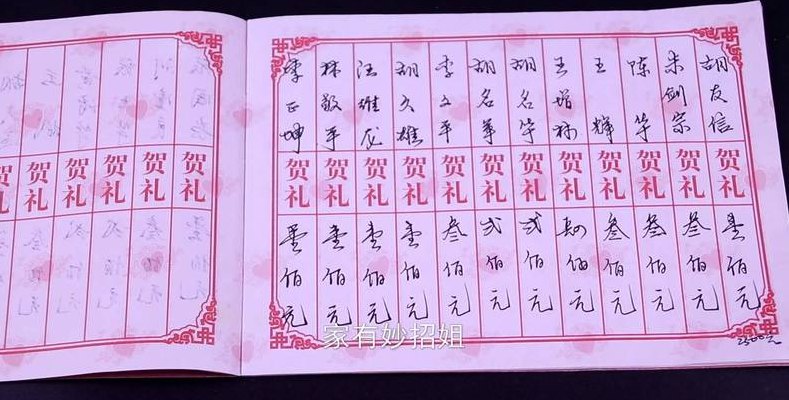 胡友信 贺礼 壹佰元
朱剑宗 贺礼 叁佰元
陈华 贺礼 叁佰元
王辉 贺礼 叁佰元
王 贺礼 肆佰元
胡名华 贺礼 弍佰元
胡名军 贺礼 弍佰元
李文平 贺礼 叁佰元
胡文雄 贺礼 壹佰元
汪雄龙 贺礼 壹佰元
林敬平 贺礼 壹佰元
李正坤 贺礼 壹佰元
2500元
贺礼
贺礼
贺礼
贺礼
贺礼
贺礼
家有妙招姐